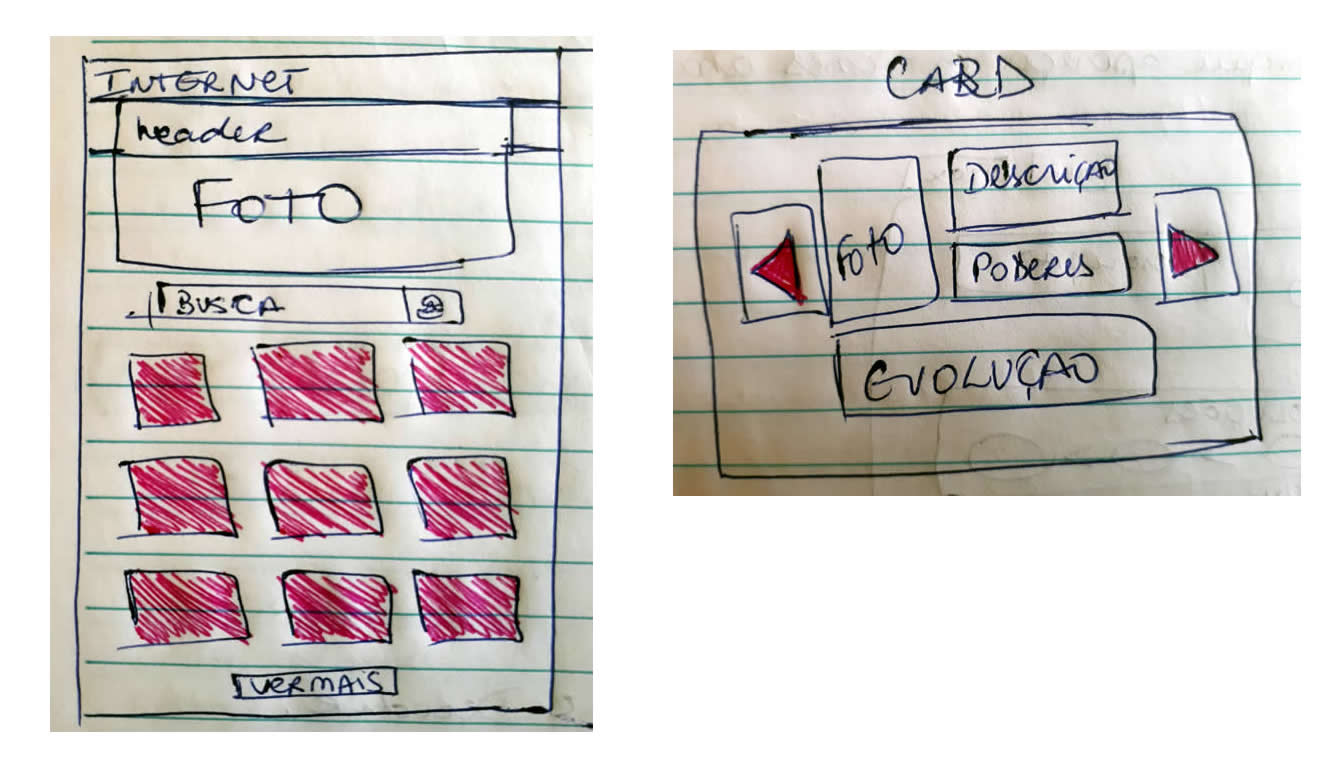 INTERNET
header
FOTO
BUSCA
VER MAIS
CARD
FOTO
Descrição
PODERES
EVOLUÇÃO